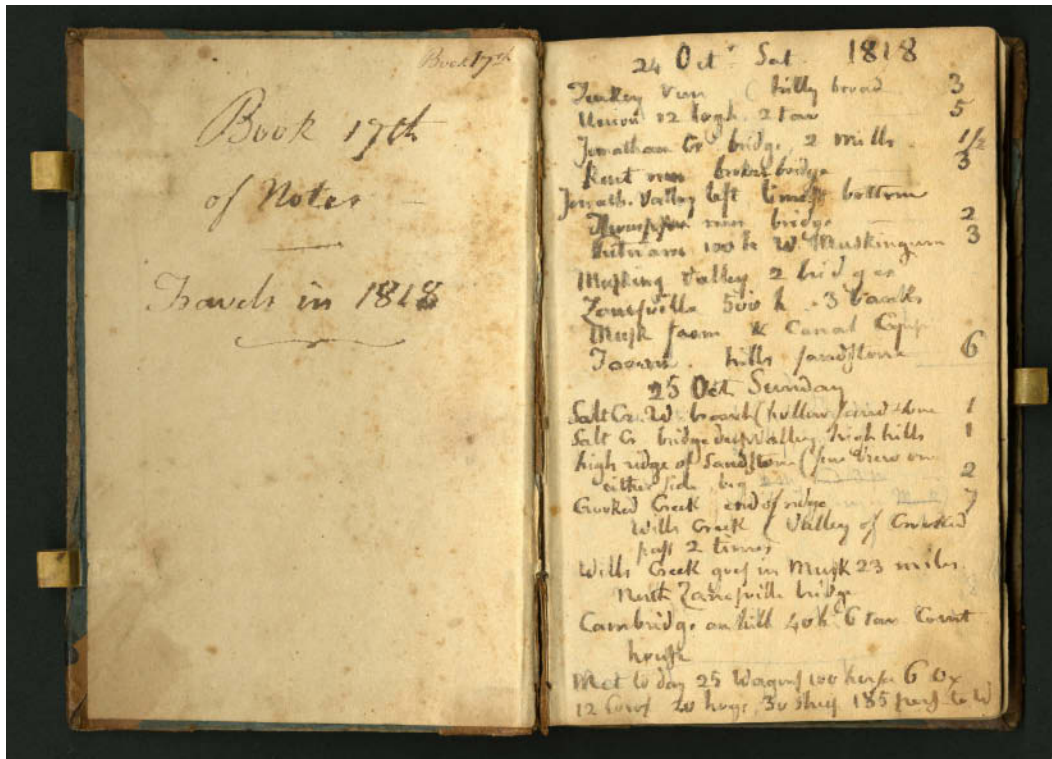 Book 17th
Book 17th
of Notes
Travels in 1818
24 Oct. Sat. 1818
Turkey run ( hilly broad 3
Union 12 logh. 2 tav 5
Jonathan Cr bridge, 2 mills 1/2
Kent run broken bridge 3
Jonath. Valley left limest bottom
run bridge 2
Putnam 100 h W. Muskingum 3
Musking Valley 2 bridges
Zanesville 500 h. 3 banks
Musk & Canal
Tavern. hills sandstone 6
25 Oct Sunday
Salt Cr. W. branch ( hollow sandstone 1
Salt Cr. bridge deep valley, high hills 1
high ridge of Sandstone ( few trees on
either side 2
Crooked Creek end of ridge 7
Wills Creek ( Valley of Crooked
pass 2 times
Wills Creek goes in Musk 23 miles
North Zanesville bridge
Cambridge on hill 40 h. 6 tav Court
house
Met to day 25 Wagons 100 horses 6 Ox
12 Cows 20 hogs, 30 sheep 185 pers. to W